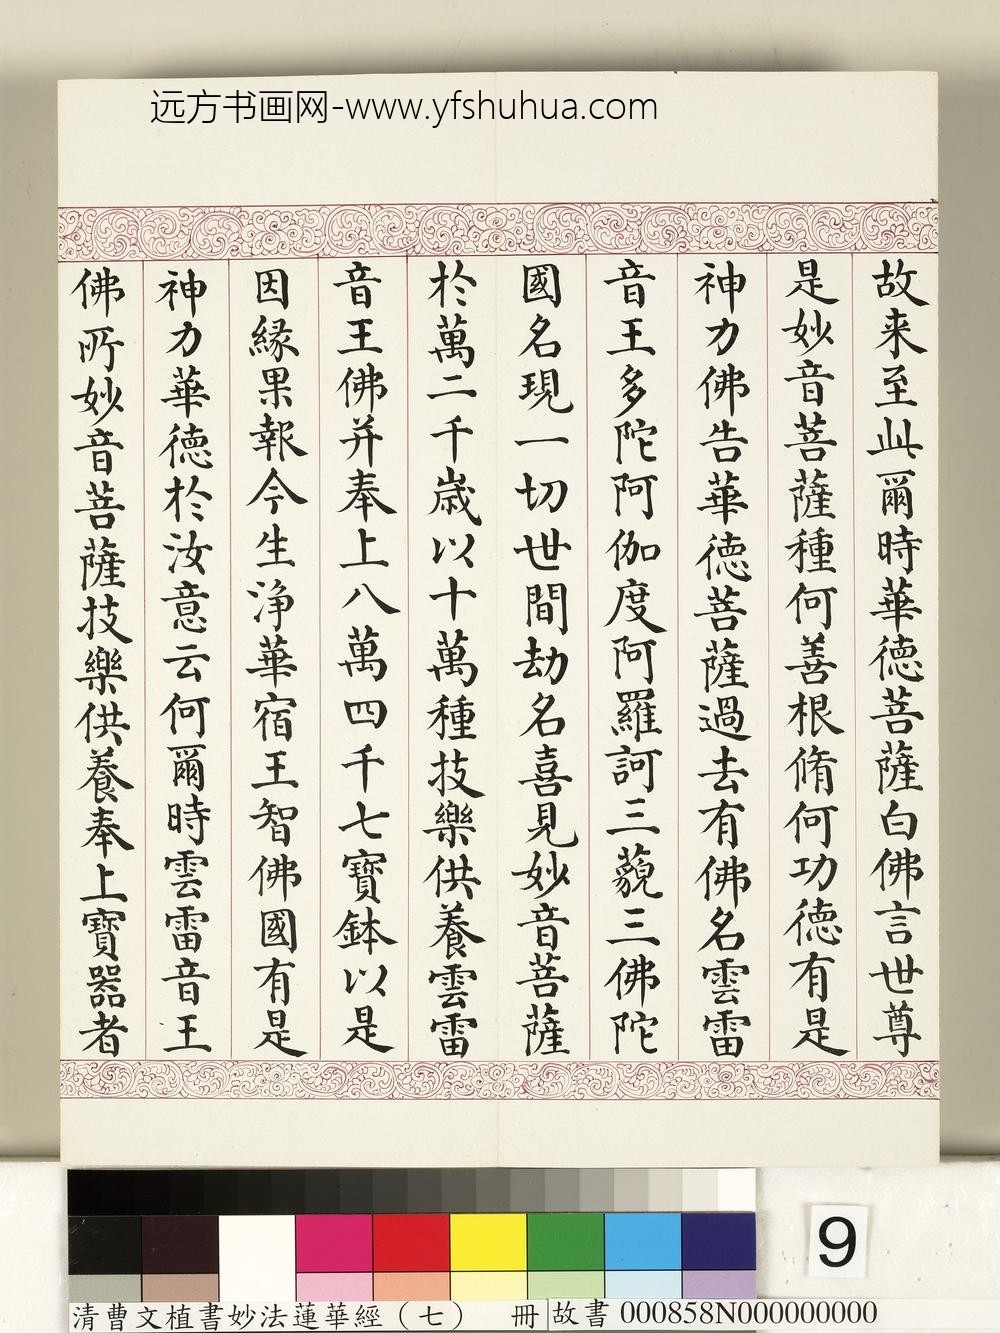 远方书画网-www.yfshuhua.com
故来至此爾時華德菩薩白佛言世尊
是妙音菩薩種何善根脩何功德有是
神力佛告華德菩薩過去有佛名雲雷
音王多陀阿伽度阿羅訶三藐三佛陀
國名現一切世間劫名喜見妙音菩薩
於萬二千歲以十萬種技樂供養雲雷
音王佛并奉上八萬四千七寶鉢以是
因緣果報今生淨華宿王智佛國有是
神力華德於汝意云何爾時雲雷音王
佛所妙音菩薩技樂供養奉上寶器者
9
清曹文植書妙法蓮華經（七） 冊 故書 000858N000000000